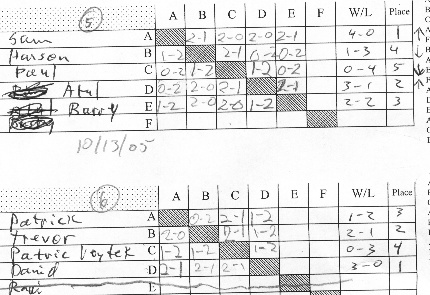 5.
A B C D E F W/L Place
Sam A 2-1 2-0 2-0 2-1 4-0 1
Harson B 1-2 2-1 0-2 0-2 1-3 4
Paul C 0-2 1-2 1-2 0-2 0-4 5
Atul D 0-2 2-0 2-1 2-1 3-1 2
Barry E 1-2 2-0 2-0 1-2 2-2 3
F
10/13/05
6
A B C D E F W/L Place
Patrick A 0-2 2-1 1-2 1-2 3
Trevor B 2-0 2-1 1-2 2-1 2
Patric Voytek C 1-2 1-2 1-2 0-3 4
David D 2-1 2-1 2-1 3-0 1
Ravi E